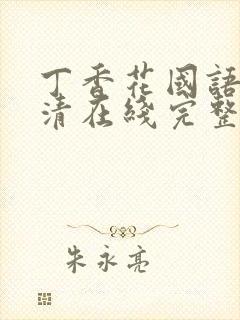 丁香花國語
清在綫完整
朱永亮